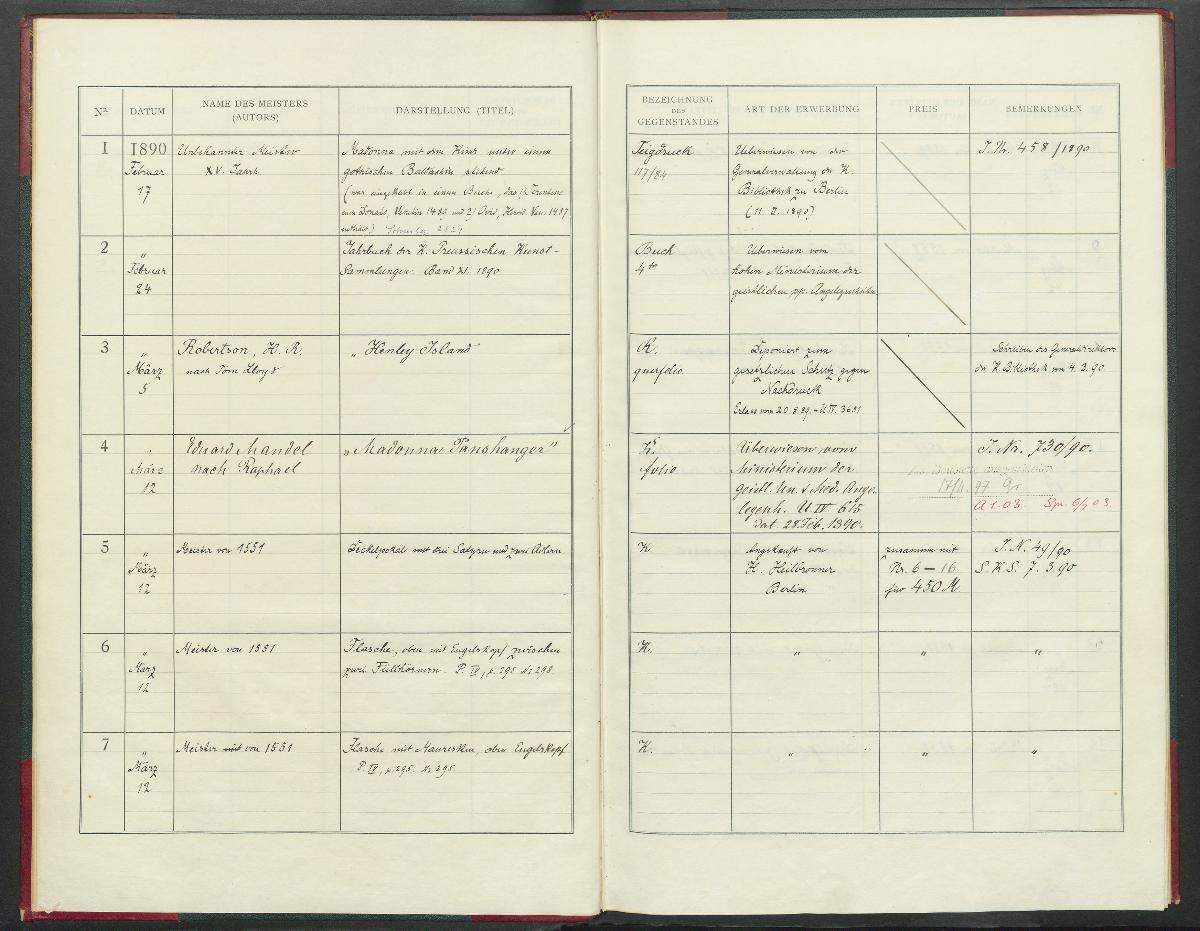 Nr.
DATUM
NAME DES MEISTERS
(AUTORS)
DARSTELLUNG (TITEL)
BEZEICHNUNG
DES
GEGENSTANDES
ART DER ERWERBUNG
PREIS
BEMERKUNGEN
1
1890
Februar
17
Unbekannter Meister
XV. Jahrh.
Madonna mit dem Kind unter einem
gothischen Baldachin stehend
(war eingeklebt in einem Buche, das 1) Terentene
cum Donato, Venedin 1489 und 2) Ovid, Heroid. Ven. 1487
enthält) Schreiber 2829
Teigdruck
117/84
Ueberwiesen von der
Generalverwaltung der K.
Bibliothek zu Berlin
(11. II. 1890)
J. Nr. 458/1890
2
"
Februar
24
Jahrbuch der K. Preussischen Kunst-
Sammlungen. Band XI. 1890
Buch
4to
Ueberwiesen vom
hohen Ministerium der
geistlichen pp. Angelegenheiten
3
"
März
5
Robertson, H. R.
nach Tom Lloyd
"Henley Island"
R.
querfolio
Deponiert zum
gesetzlichen Schutz gegen
Nachdruck
Erlass vom 20.8.89. - U IV. 3631
Schreiben des Generaldirektors
der K. Bibliothek vom 4.3.90.
4
"
März
12
Eduard Mandel
nach Raphael
"Madonna Panshanger"
K.
folio
Überwiesen vom
Ministerium der
geistl. Un. & Med. Ange-
legenh. U IV 615
dat 28. Feb. 1890.
J. Nr. 730/90.
17/11. 97 Gr.
A 1.03. Spr. 6/7 03
5
"
März
12
Meister von 1551
Deckelpokal mit drei Satyrn und zwei Adlern
K
Angekauft von
H. Heilbronner
Berlin
zusammen mit
Nr. 6-16
für 450 M.
J. N. 49/90
S.K.S. 7.3.90
6
"
März
12
Meister von 1551
Flasche, oben mit Engelskopf zwischen
zwei Füllhörnern. P. IV, p. 295 Nr. 298.
K.
"
"
"
7
"
März
12
Meister mit von 1551
Flasche mit Mauresken, oben Engelskopf
P. IV, p. 295. Nr 295.
K.
"
"
"